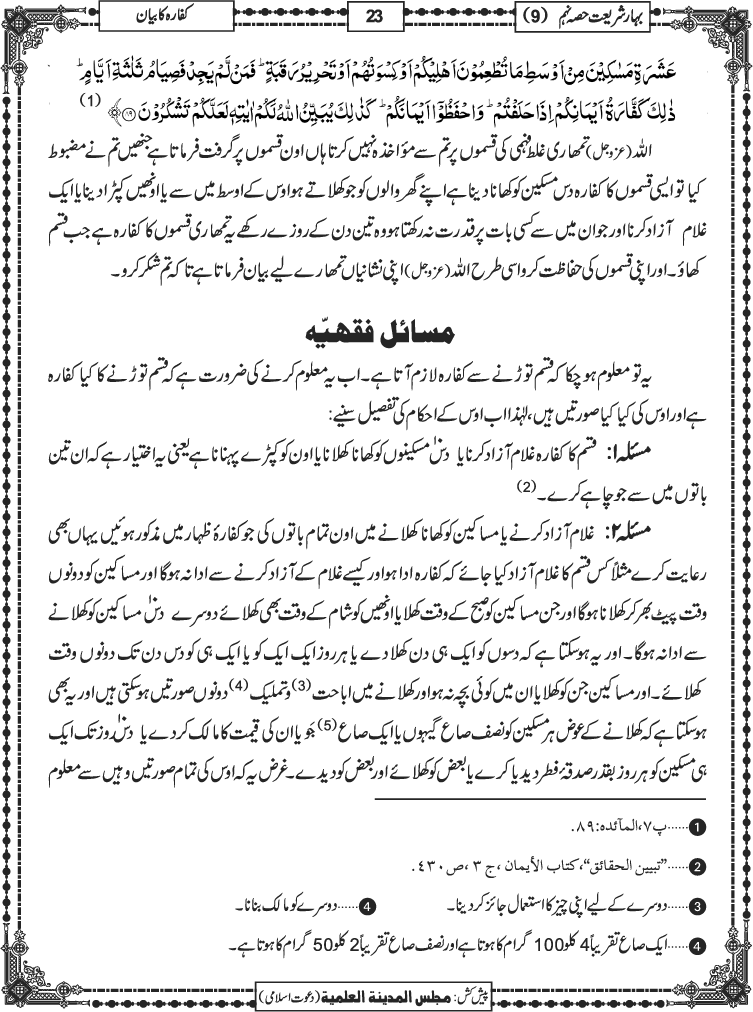 بہار شریعت حصہ نہم (9)
23
کفارہ کا بیان
عَشَرَةِ مَسٰكِیْنَ مِنْ اَوْسَطِ مَا تُطْعِمُوْنَ اَهْلِیْكُمْ اَوْ كِسْوَتُهُمْ اَوْ تَحْرِیْرُ رَقَبَةٍؕ فَمَنْ لَّمْ یَجِدْ فَصِیَامُ ثَلٰثَةِ اَیَّامٍؕ
ذٰلِكَ كَفَّارَةُ اَیْمَانِكُمْ اِذَا حَلَفْتُمْؕ وَ احْفَظُوْۤا اَیْمَانَكُمْؕ كَذٰلِكَ یُبَیِّنُ اللّٰهُ لَكُمْ اٰیٰتِهٖ لَعَلَّكُمْ تَشْكُرُوْنَ ﴿۸۹﴾ (1)
اللہ (عزوجل) تمھاری غلط فہمی کی قسموں پر تم سے مؤاخذہ نہیں کرتا ہاں اون قسموں پر گرفت فرماتا ہے جنھیں تم نے مضبوط
کیا تو ایسی قسموں کا کفارہ دس مسکین کو کھانا دینا ہے اپنے گھر والوں کو جو کھلاتے ہو اوس کے اوسط میں سے یا اونھیں کپڑا دینا یا ایک
غلام آزاد کرنا اور جو ان میں سے کسی بات پر قدرت نہ رکھتا ہو وہ تین دن کے روزے رکھے یہ تمھاری قسموں کا کفارہ ہے جب قسم
کھاؤ۔ اور اپنی قسموں کی حفاظت کرو اسی طرح اللہ (عزوجل) اپنی نشانیاں تمھارے لیے بیان فرماتا ہے تا کہ تم شکر کرو۔
مسائل فقهیّه
یہ تو معلوم ہو چکا کہ قسم توڑنے سے کفارہ لازم آتا ہے۔ اب یہ معلوم کرنے کی ضرورت ہے کہ قسم توڑنے کا کیا کفارہ
ہے اور اوس کی کیا کیا صورتیں ہیں، لہٰذا اب اوس کے احکام کی تفصیل سنیے:
مسئلہ ۱: قسم کا کفارہ غلام آزاد کرنا یا دس۱۰ مسکینوں کو کھانا کھلانا یا اون کو کپڑے پہنانا ہے یعنی یہ اختیار ہے کہ ان تین
باتوں میں سے جو چاہے کرے۔ (2)
مسئلہ ۲: غلام آزاد کرنے یا مساکین کو کھانا کھلانے میں اون تمام باتوں کی جو کفارۂ ظہار میں مذکور ہوئیں یہاں بھی
رعایت کرے مثلاً کس قسم کا غلام آزاد کیا جائے کہ کفارہ ادا ہو اور کیسے غلام کے آزاد کرنے سے ادا نہ ہوگا اور مساکین کو دونوں
وقت پیٹ بھر کر کھلانا ہوگا اور جن مساکین کو صبح کے وقت کھلایا اونھیں کو شام کے وقت بھی کھلائے دوسرے دس۱۰ مساکین کو کھلانے
سے ادا نہ ہوگا۔ اور یہ ہوسکتا ہے کہ دسوں کو ایک ہی دن کھلا دے یا ہر روز ایک ایک کو یا ایک ہی کو دس دن تک دونوں وقت
کھلائے۔ اور مساکین جن کو کھلایا ان میں کوئی بچہ نہ ہو اور کھلانے میں اباحت (3) و تملیک (4) دونوں صورتیں ہوسکتی ہیں اور یہ بھی
ہوسکتا ہے کہ کھلانے کے عوض ہر مسکین کو نصف صاع گیہوں یا ایک صاع (5) جَو یا ان کی قیمت کا مالک کر دے یا دس۱۰ روز تک ایک
ہی مسکین کو ہر روز بقدر صدقۂ فطر دیدیا کرے یا بعض کو کھلائے اور بعض کو دیدے۔ غرض یہ کہ اوس کی تمام صورتیں وہیں سے معلوم
1 ......پ ۷، المآئدہ: ۸۹.
2 ......"تبیین الحقائق"، کتاب الأیمان، ج ۳، ص ٤٣٠.
3 ......دوسرے کے لیے اپنی چیز کا استعمال جائز کر دینا۔ 4 ......دوسرے کو مالک بنانا۔
4 ......ایک صاع تقریباً 4 کلو 100 گرام کا ہوتا ہے اور نصف صاع تقریباً 2 کلو 50 گرام کا ہوتا ہے۔
پیش کش: مجلس المدینة العلمیة (دعوت اسلامی)